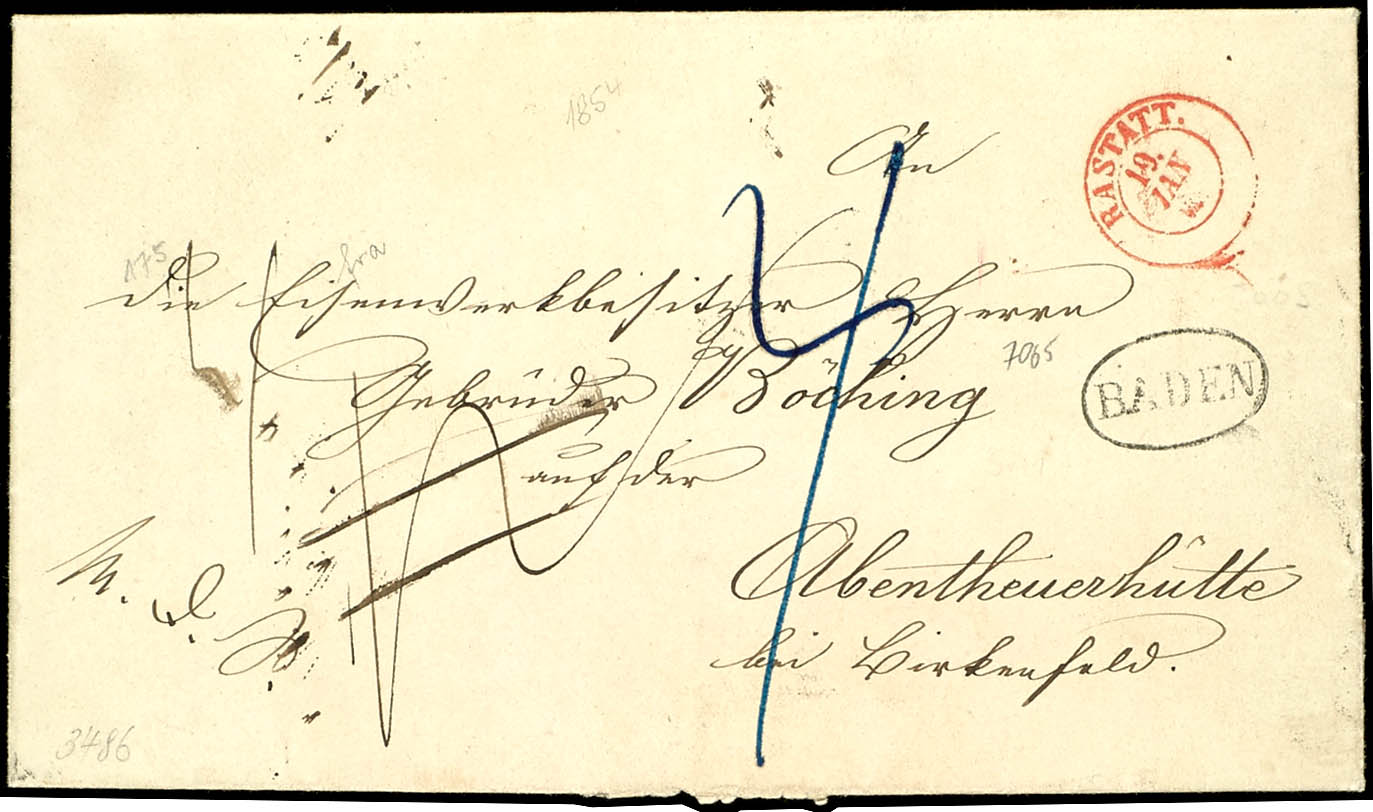 1854
RASTATT.
19.
JAN
An
175
fra
die Eisenwerkbesitzer Herrn
7065
Gebrüder Böcking
BADEN
auf der
Abentheuerhütte
bei Birkenfeld.
3486